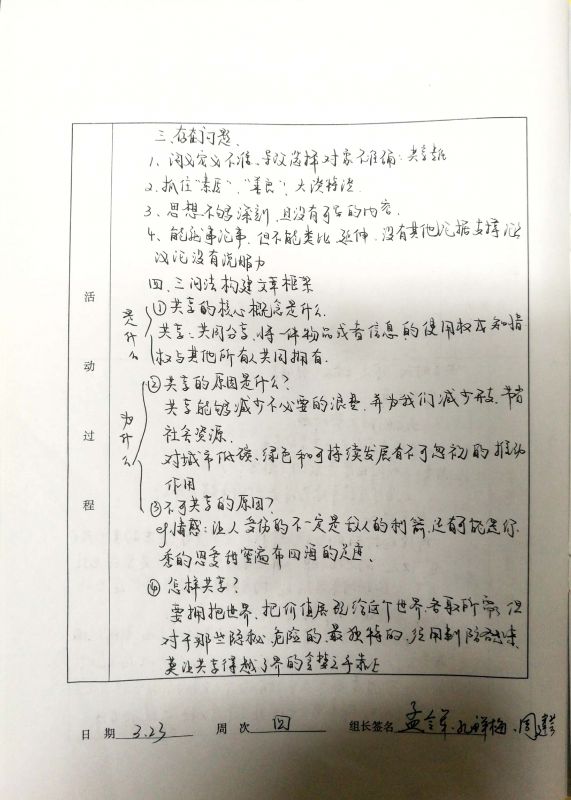 三、存在问题
1、词义定义不准、导致选择对象不准确：共享单
2、抓住“素质”、“善良”，大谈特谈
3、思想不够深刻，且没有可写的内容、
4、能就事论事，但不能类比、延伸，没有其他论据支撑，论
议论没有说服力
四、三问法构建文章框架
是什么
①共享的核心概念是什么
共享：共同分享，将一件物品或者信息的使用权或知情
权与其他所有人共同拥有.
为什么
②共享的原因是什么？
共享能够减少不必要的浪费，并为我们减少开支、节省
社会资源.
对城市低碳、绿色和可持续发展有不可忽视的推动
作用
③不可共享的原因？
情感：让人受伤的不一定是敌人的利箭，还有可能是你
秀的恩爱甜蜜遍布四海的
④怎样共享？
要拥抱世界、把价值展现给这个世界，各取所需，但
对于那些隐秘、危险的、最独特的，须用制
莫让共享得越了界的
活动过程
日 期 3.23 周 次 四 组长签名 孟